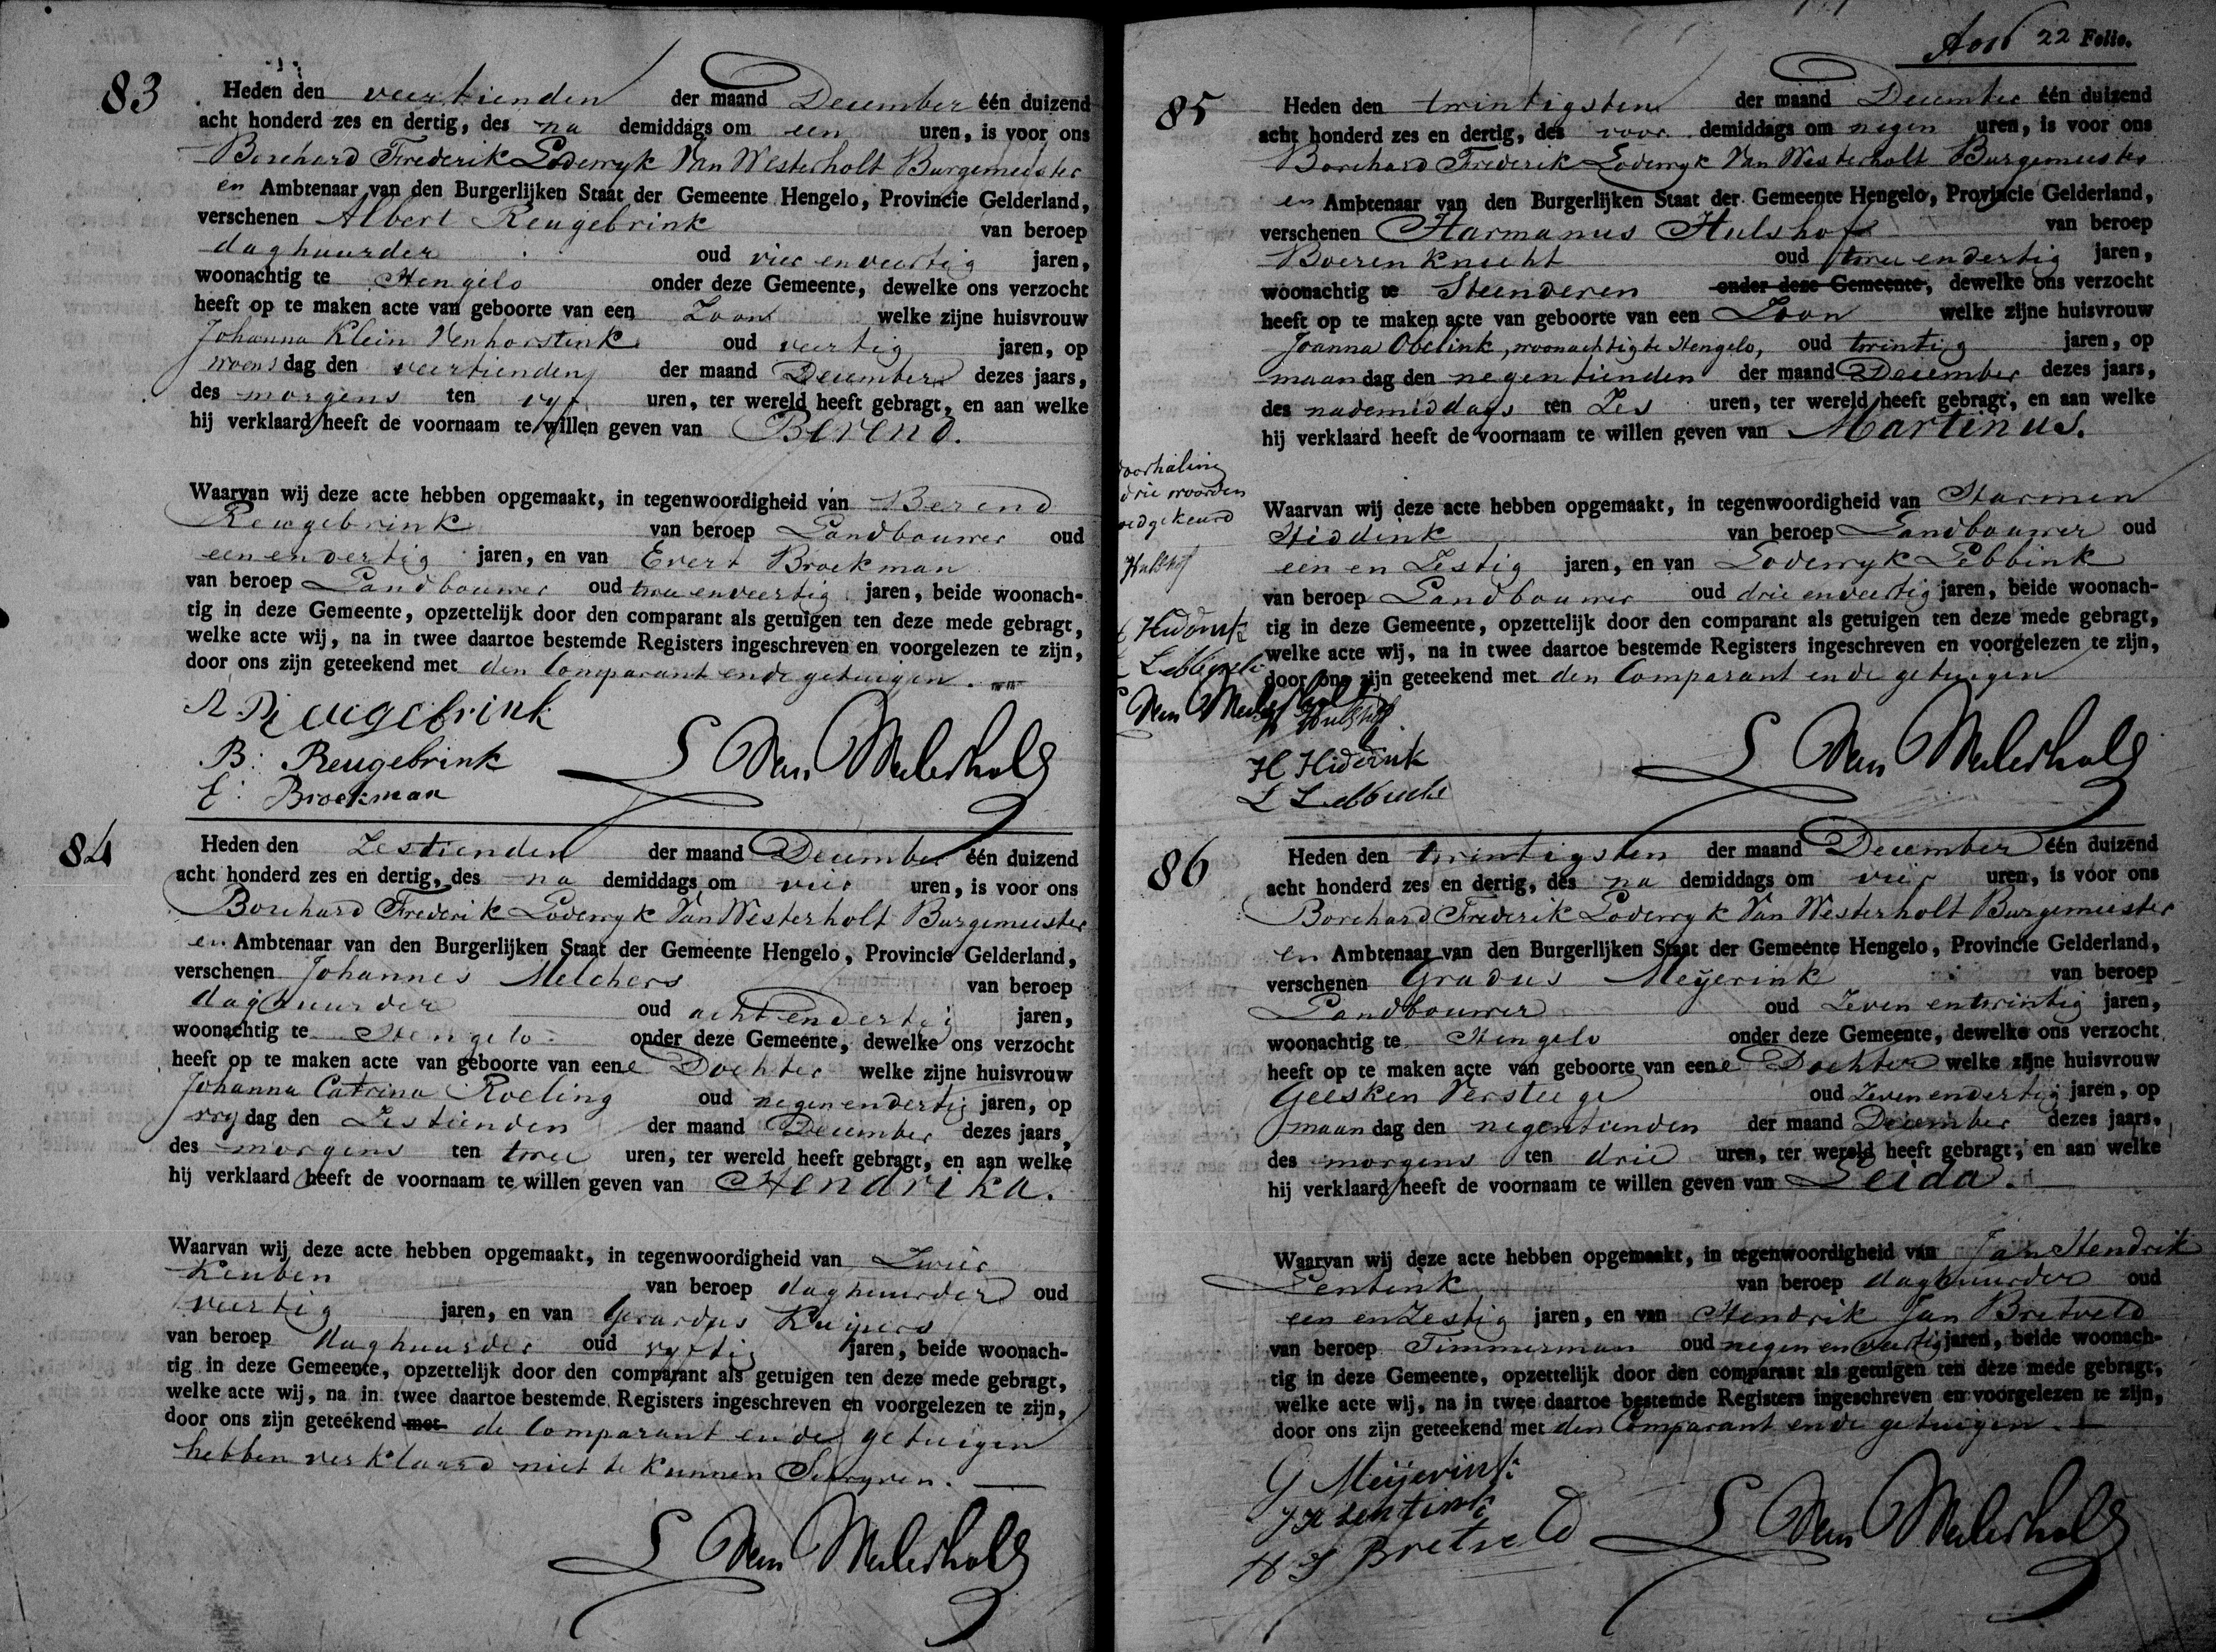 83
Heden den veertienden der maand December één duizend
acht honderd zes en dertig, des na demiddags om een uren, is voor ons
Borchard Frederik Loderryk Van Westerholt Burgemeester
en Ambtenaar van den Burgerlijken Staat der Gemeente Hengelo, Provincie Gelderland,
verschenen Albert Reugebrink van beroep
daghuurder oud vier en veertig jaren,
woonachtig te Hengelo onder deze Gemeente, dewelke ons verzocht
heeft op te maken acte van geboorte van een Zoon welke zijne huisvrouw
Johanna Klein Venhorstink oud veertig jaren, op
woensdag den veertienden der maand December dezes jaars,
des morgens ten vyf uren, ter wereld heeft gebragt, en aan welke
hij verklaard heeft de voornaam te willen geven van Berend.
Waarvan wij deze acte hebben opgemaakt, in tegenwoordigheid van Berend
Reugebrink van beroep Landbouwer oud
een en dertig jaren, en van Evert Broekman
van beroep Landbouwer oud twee en veertig jaren, beide woonach-
tig in deze Gemeente, opzettelijk door den comparant als getuigen ten deze mede gebragt,
welke acte wij, na in twee daartoe bestemde Registers ingeschreven en voorgelezen te zijn,
door ons zijn geteekend met den Comparant en de getuigen.
A Reugebrink
B: Reugebrink
E: Broekman
L Van Westerholt
84
Heden den Zestienden der maand December één duizend
acht honderd zes en dertig, des na demiddags om vier uren, is voor ons
Borchard Frederik Loderryk Van Westerholt Burgemeester
en Ambtenaar van den Burgerlijken Staat der Gemeente Hengelo, Provincie Gelderland,
verschenen Johannes Melchers van beroep
daghuurder oud acht en dertig jaren,
woonachtig te Hengelo onder deze Gemeente, dewelke ons verzocht
heeft op te maken acte van geboorte van eene Dochter welke zijne huisvrouw
Johanna Catrina Roeling oud negen en dertig jaren, op
vrydag den Zestienden der maand December dezes jaars,
des morgens ten twee uren, ter wereld heeft gebragt, en aan welke
hij verklaard heeft de voornaam te willen geven van Hendrika.
Waarvan wij deze acte hebben opgemaakt, in tegenwoordigheid van Zwier
Keuben van beroep daghuurder oud
veertig jaren, en van Gerardus Kuipers
van beroep daghuurder oud vyftig jaren, beide woonach-
tig in deze Gemeente, opzettelijk door den comparant als getuigen ten deze mede gebragt,
welke acte wij, na in twee daartoe bestemde Registers ingeschreven en voorgelezen te zijn,
door ons zijn geteekend met de Comparant en de getuigen
hebben verklaard niet te kunnen Schryven.
L Van Westerholt
22 Folio.
85
Heden den twintigsten der maand December één duizend
acht honderd zes en dertig, des voor demiddags om negen uren, is voor ons
Borchard Frederik Loderryk Van Westerholt Burgemeester
en Ambtenaar van den Burgerlijken Staat der Gemeente Hengelo, Provincie Gelderland,
verschenen Harmanus Hulshof van beroep
Boerenknecht oud twee en dertig jaren,
woonachtig te Steenderen onder deze Gemeente, dewelke ons verzocht
heeft op te maken acte van geboorte van een Zoon welke zijne huisvrouw
Joanna Obelink, woonachtig te Hengelo, oud twintig jaren, op
maandag den negentienden der maand December dezes jaars,
des nademiddags ten Zes uren, ter wereld heeft gebragt, en aan welke
hij verklaard heeft de voornaam te willen geven van Martinus.
doorhaling
drie woorden
goedgekeurd
Hulshof
Hiddink
L Lebbink
Van Westerholt
Waarvan wij deze acte hebben opgemaakt, in tegenwoordigheid van Harmen
Hiddink van beroep Landbouwer oud
een en Zestig jaren, en van Loderryk Lebbink
van beroep Landbouwer oud drie en veertig jaren, beide woonach-
tig in deze Gemeente, opzettelijk door den comparant als getuigen ten deze mede gebragt,
welke acte wij, na in twee daartoe bestemde Registers ingeschreven en voorgelezen te zijn,
door ons zijn geteekend met den Comparant en de getuigen
H Hulshof
H Hiddink
L Lebbink
L Van Westerholt
86
Heden den twintigsten der maand December één duizend
acht honderd zes en dertig, des na demiddags om vier uren, is voor ons
Borchard Frederik Loderryk Van Westerholt Burgemeester
en Ambtenaar van den Burgerlijken Staat der Gemeente Hengelo, Provincie Gelderland,
verschenen Gradus Meÿerink van beroep
Landbouwer oud Zeven en twintig jaren,
woonachtig te Hengelo onder deze Gemeente, dewelke ons verzocht
heeft op te maken acte van geboorte van eene Dochter welke zijne huisvrouw
Geesken Versteege oud Zeven en dertig jaren, op
maandag den negentienden der maand December dezes jaars,
des morgens ten drie uren, ter wereld heeft gebragt, en aan welke
hij verklaard heeft de voornaam te willen geven van Leida.
Waarvan wij deze acte hebben opgemaakt, in tegenwoordigheid van Jan Hendrik
Lentink van beroep daghuurder oud
een en Zestig jaren, en van Hendrik Jan Bretveld
van beroep Timmerman oud negen en veertig jaren, beide woonach-
tig in deze Gemeente, opzettelijk door den comparant als getuigen ten deze mede gebragt,
welke acte wij, na in twee daartoe bestemde Registers ingeschreven en voorgelezen te zijn,
door ons zijn geteekend met den Comparant en de getuigen.
G Meijerink
J H Lentink
H J Bretveld
L Van Westerholt